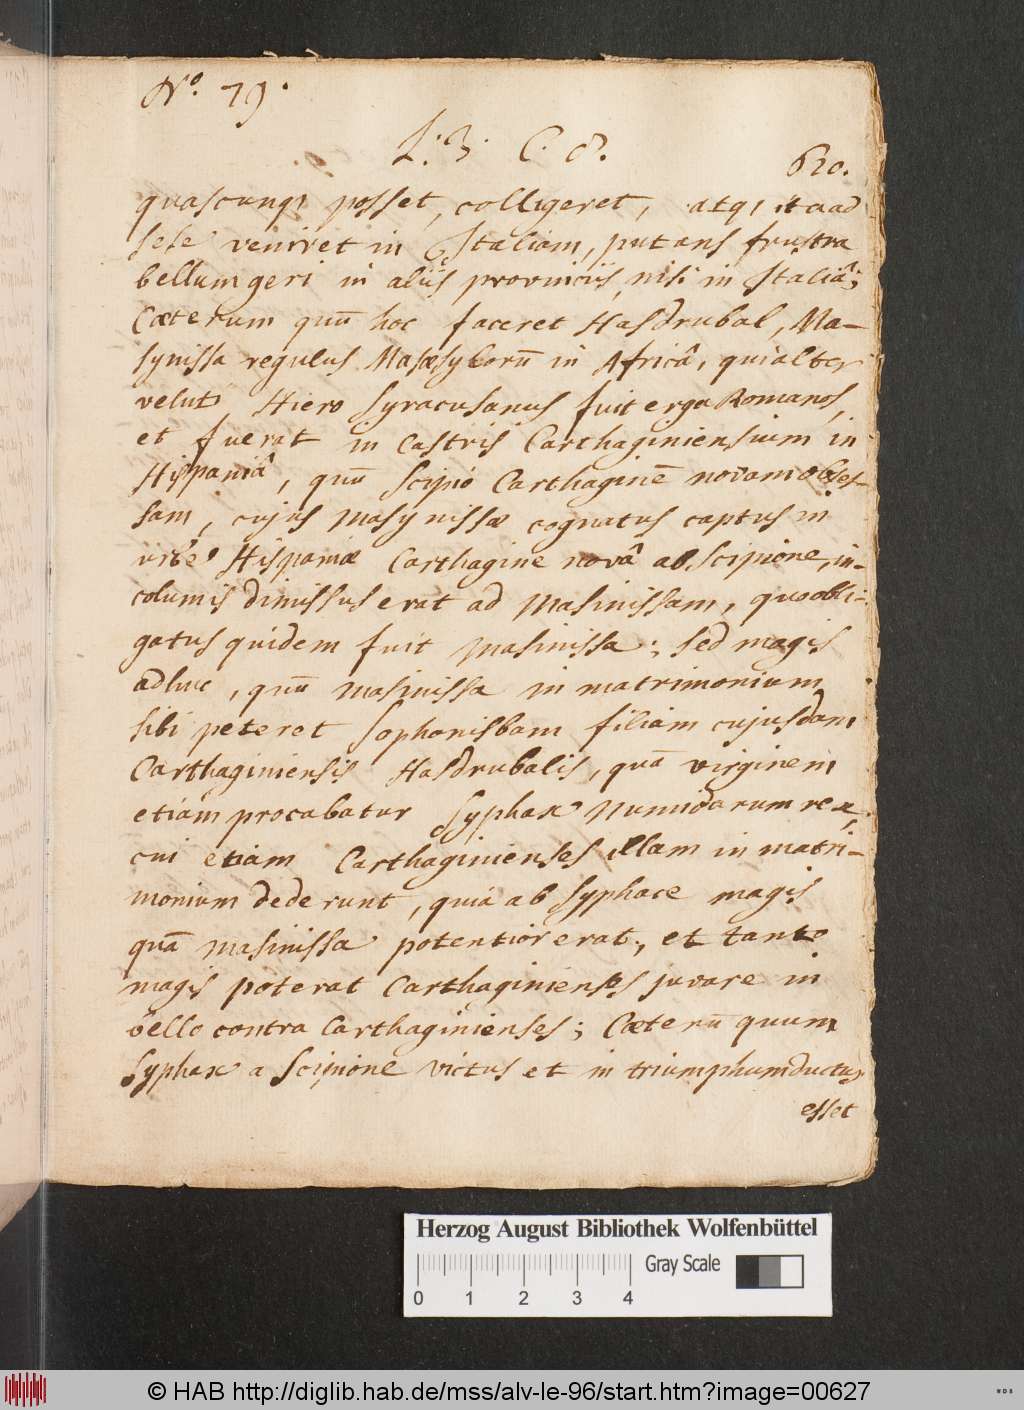 No. 79.
L. 3. C. 8.
620.
quascunqꝫ posset, colligeret, atqꝫ ita ad
sese veniret in Italiam, putans frustra
bellum geri in aliis provinciis, nisi in Italiâ;
Cæterum quū hoc faceret Hasdrubal, Ma-
synissa regulus Masæsylorū in Africâ, qui alter
velut Hiero Syracusanus fuit erga Romanos,
et fuerat in castris Carthaginiensium in
Hispaniâ, quū Scipio Carthaginē novam obses-
sam, cujus Masynissæ cognatus captus in
urbe Hispaniæ Carthagine novâ ab Scipione, in-
columis dimissus erat ad Masinissam, quo obli-
gatus quidem fuit Masinissa; sed magis
adhuc, quū Masinissa in matrimonium
sibi peteret Sophonisbam filiam cujusdam
Carthaginiensis Hasdrubalis, quā virginem
etiam procabatur Syphax Numidarum rex,
cui etiam Carthaginienses illam in matri-
monium dederunt, quia ab Syphace magis
quā Masinissa potentior erat, et tanto
magis poterat Carthaginienses juvare in
bello contra Carthaginienses; Cæterū quum
Syphax a Scipione victus et in triumphum ductus
esset
Herzog August Bibliothek Wolfenbüttel
Gray Scale
0 1 2 3 4
© HAB http://diglib.hab.de/mss/alv-le-96/start.htm?image=00627